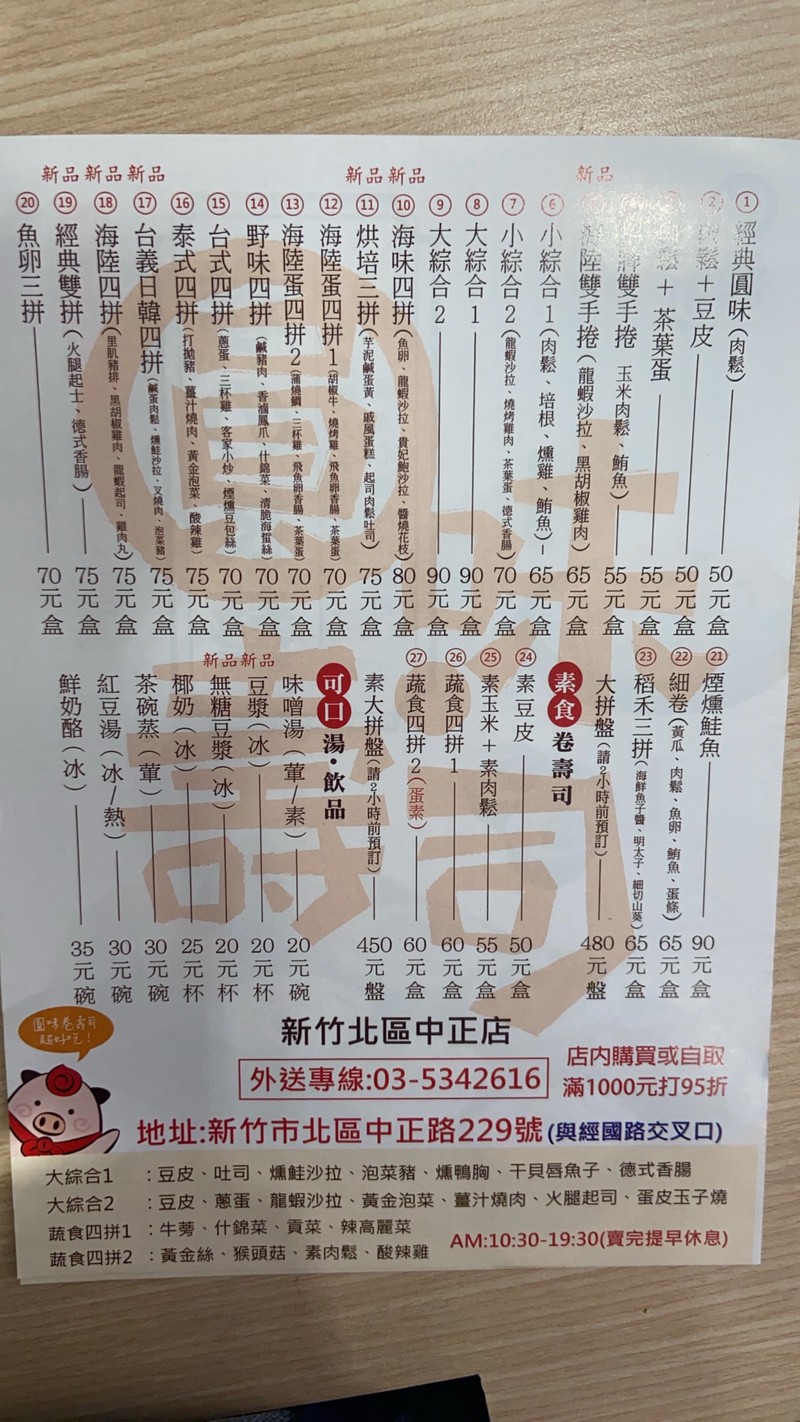 新品
① 經典圓味(肉鬆) 50元盒
② 鬆+豆皮 50元盒
鬆+茶葉蛋 55元盒
牌雙手捲 玉米肉鬆、鮪魚) 55元盒
陸雙手捲(龍蝦沙拉、黑胡椒雞肉) 65元盒
⑥ 小綜合1(肉鬆、培根、燻雞、鮪魚) 65元盒
⑦ 小綜合2(龍蝦沙拉、燒烤雞肉、茶葉蛋、德式香腸) 70元盒
⑧ 大綜合1 90元盒
⑨ 大綜合2 90元盒
新品新品
⑩ 海味四拼(魚卵、龍蝦沙拉、貴妃鮑沙拉、醬燒花枝) 80元盒
⑪ 烘培三拼(芋泥鹹蛋黃、戚風蛋糕、起司肉鬆吐司) 75元盒
⑫ 海陸蛋四拼1(胡椒牛、燒烤雞、飛魚卵香腸、茶葉蛋) 70元盒
⑬ 海陸蛋四拼2(蒲燒鯛、三杯雞、飛魚卵香腸、茶葉蛋) 70元盒
⑭ 野味四拼(鹹豬肉、香滷鳳爪、什錦菜、清脆海蜇絲) 70元盒
⑮ 台式四拼(蔥蛋、三杯雞、客家小炒、煙燻豆包絲) 70元盒
⑯ 泰式四拼(打拋豬、薑汁燒肉、黃金泡菜、酸辣雞) 75元盒
新品新品新品
⑰ 台義日韓四拼(鹹蛋肉鬆、燻鮭沙拉、叉燒肉、泡菜豬) 75元盒
⑱ 海陸四拼(里肌豬排、黑胡椒雞肉、龍蝦起司、雞肉丸) 75元盒
⑲ 經典雙拼(火腿起士、德式香腸) 75元盒
⑳ 魚卵三拼 70元盒
㉑ 煙燻鮭魚 90元盒
㉒ 細卷(黃瓜、肉鬆、魚卵、鮪魚、蛋條) 65元盒
㉓ 稻禾三拼(海鮮魚子醬、明太子、細切山葵) 65元盒
大拼盤(請2小時前預訂) 480元盤
素食 卷壽司
㉔ 素豆皮 50元盒
㉕ 素玉米+素肉鬆 55元盒
㉖ 蔬食四拼1 60元盒
㉗ 蔬食四拼2(蛋素) 60元盒
素大拼盤(請2小時前預訂) 450元盤
可口 湯・飲品
味噌湯(葷/素) 20元碗
新品新品
豆漿(冰) 20元杯
無糖豆漿(冰) 20元杯
椰奶(冰) 25元杯
茶碗蒸(葷) 30元碗
紅豆湯(冰/熱) 30元碗
鮮奶酪(冰) 35元碗
圓味卷壽司
超好吃!
新竹北區中正店
外送專線:03-5342616
店內購買或自取
滿1000元打95折
地址:新竹市北區中正路229號(與經國路交叉口)
大綜合1 :豆皮、吐司、燻鮭沙拉、泡菜豬、燻鴨胸、干貝唇魚子、德式香腸
大綜合2 :豆皮、蔥蛋、龍蝦沙拉、黃金泡菜、薑汁燒肉、火腿起司、蛋皮玉子燒
蔬食四拼1 :牛蒡、什錦菜、貢菜、辣高麗菜
蔬食四拼2 :黃金絲、猴頭菇、素肉鬆、酸辣雞
AM:10:30-19:30(賣完提早休息)